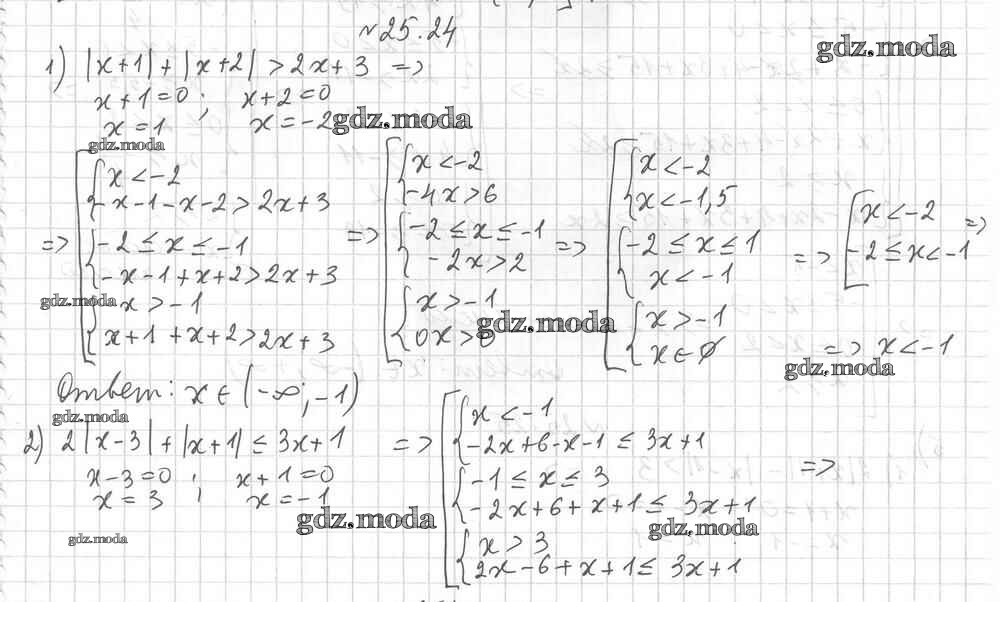 №25.24
gdz.moda
1) |x+1| + |x+2| > 2x+3 =>
x+1=0 ; x+2=0
x=1 x=-2
gdz.moda
gdz.moda
=> [ { x<-2
-x-1-x-2>2x+3
{ -2≤x≤-1
-x-1+x+2>2x+3
{ x>-1
x+1+x+2>2x+3
=> [ { x<-2
-4x>6
{ -2≤x≤-1
-2x>2
{ x>-1
0x>0
=> [ { x<-2
x<-1,5
{ -2≤x≤1
x<-1
{ x>-1
x∈∅
=> [ x<-2
-2≤x<-1 =>
=> x<-1
gdz.moda
gdz.moda
gdz.moda
Ответ: x∈(-∞;-1)
gdz.moda
2) 2|x-3| + |x+1| ≤ 3x+1 =>
x-3=0 ; x+1=0
x=3 ; x=-1
[ { x<-1
-2x+6-x-1≤3x+1
{ -1≤x≤3
-2x+6+x+1≤3x+1
{ x>3
2x-6+x+1≤3x+1
=>
gdz.moda
gdz.moda
gdz.moda